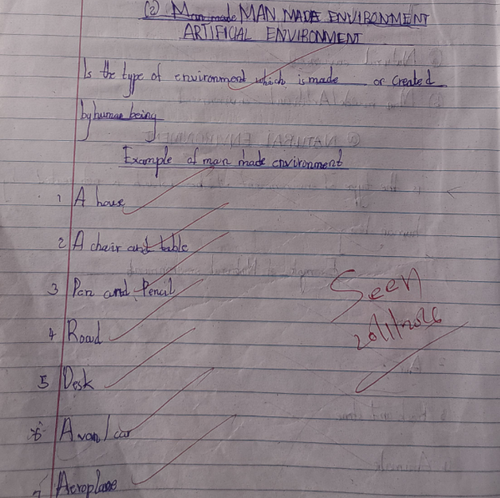 (2) Man made MAN MADE ENVIRONMENT
ARTIFICIAL ENVIRONMENT
Is the type of environment which is made or created
by human being
Example of man made environment
1 A house
2 A chair and table
3 Pen and Pencil
Seen
4 Road
20/1/2026
5 Desk
6 A van/car
7 Aeroplane